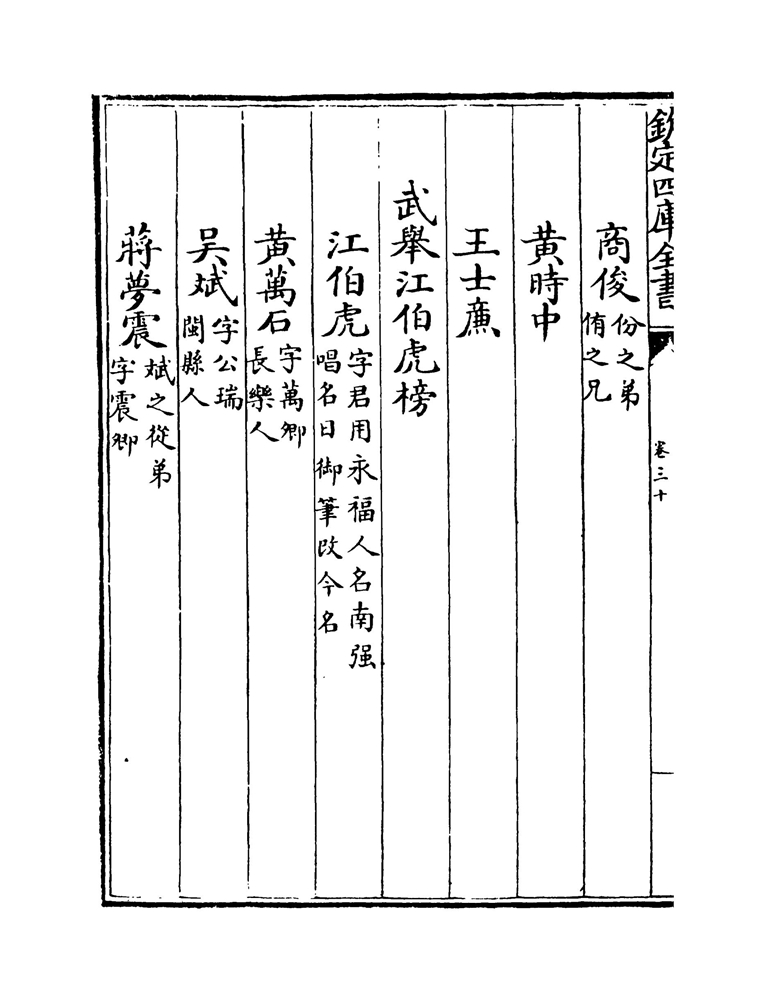 欽定四庫全書
卷三十
商俊份之弟
侑之兄
黄時中
王士㢘
武舉江伯虎榜
江伯虎字君用永福人名南强
唱名日御筆改今名
黄萬石字萬卿
長樂人
吴斌字公瑞
閩縣人
蔣夢震斌之從弟
字震卿